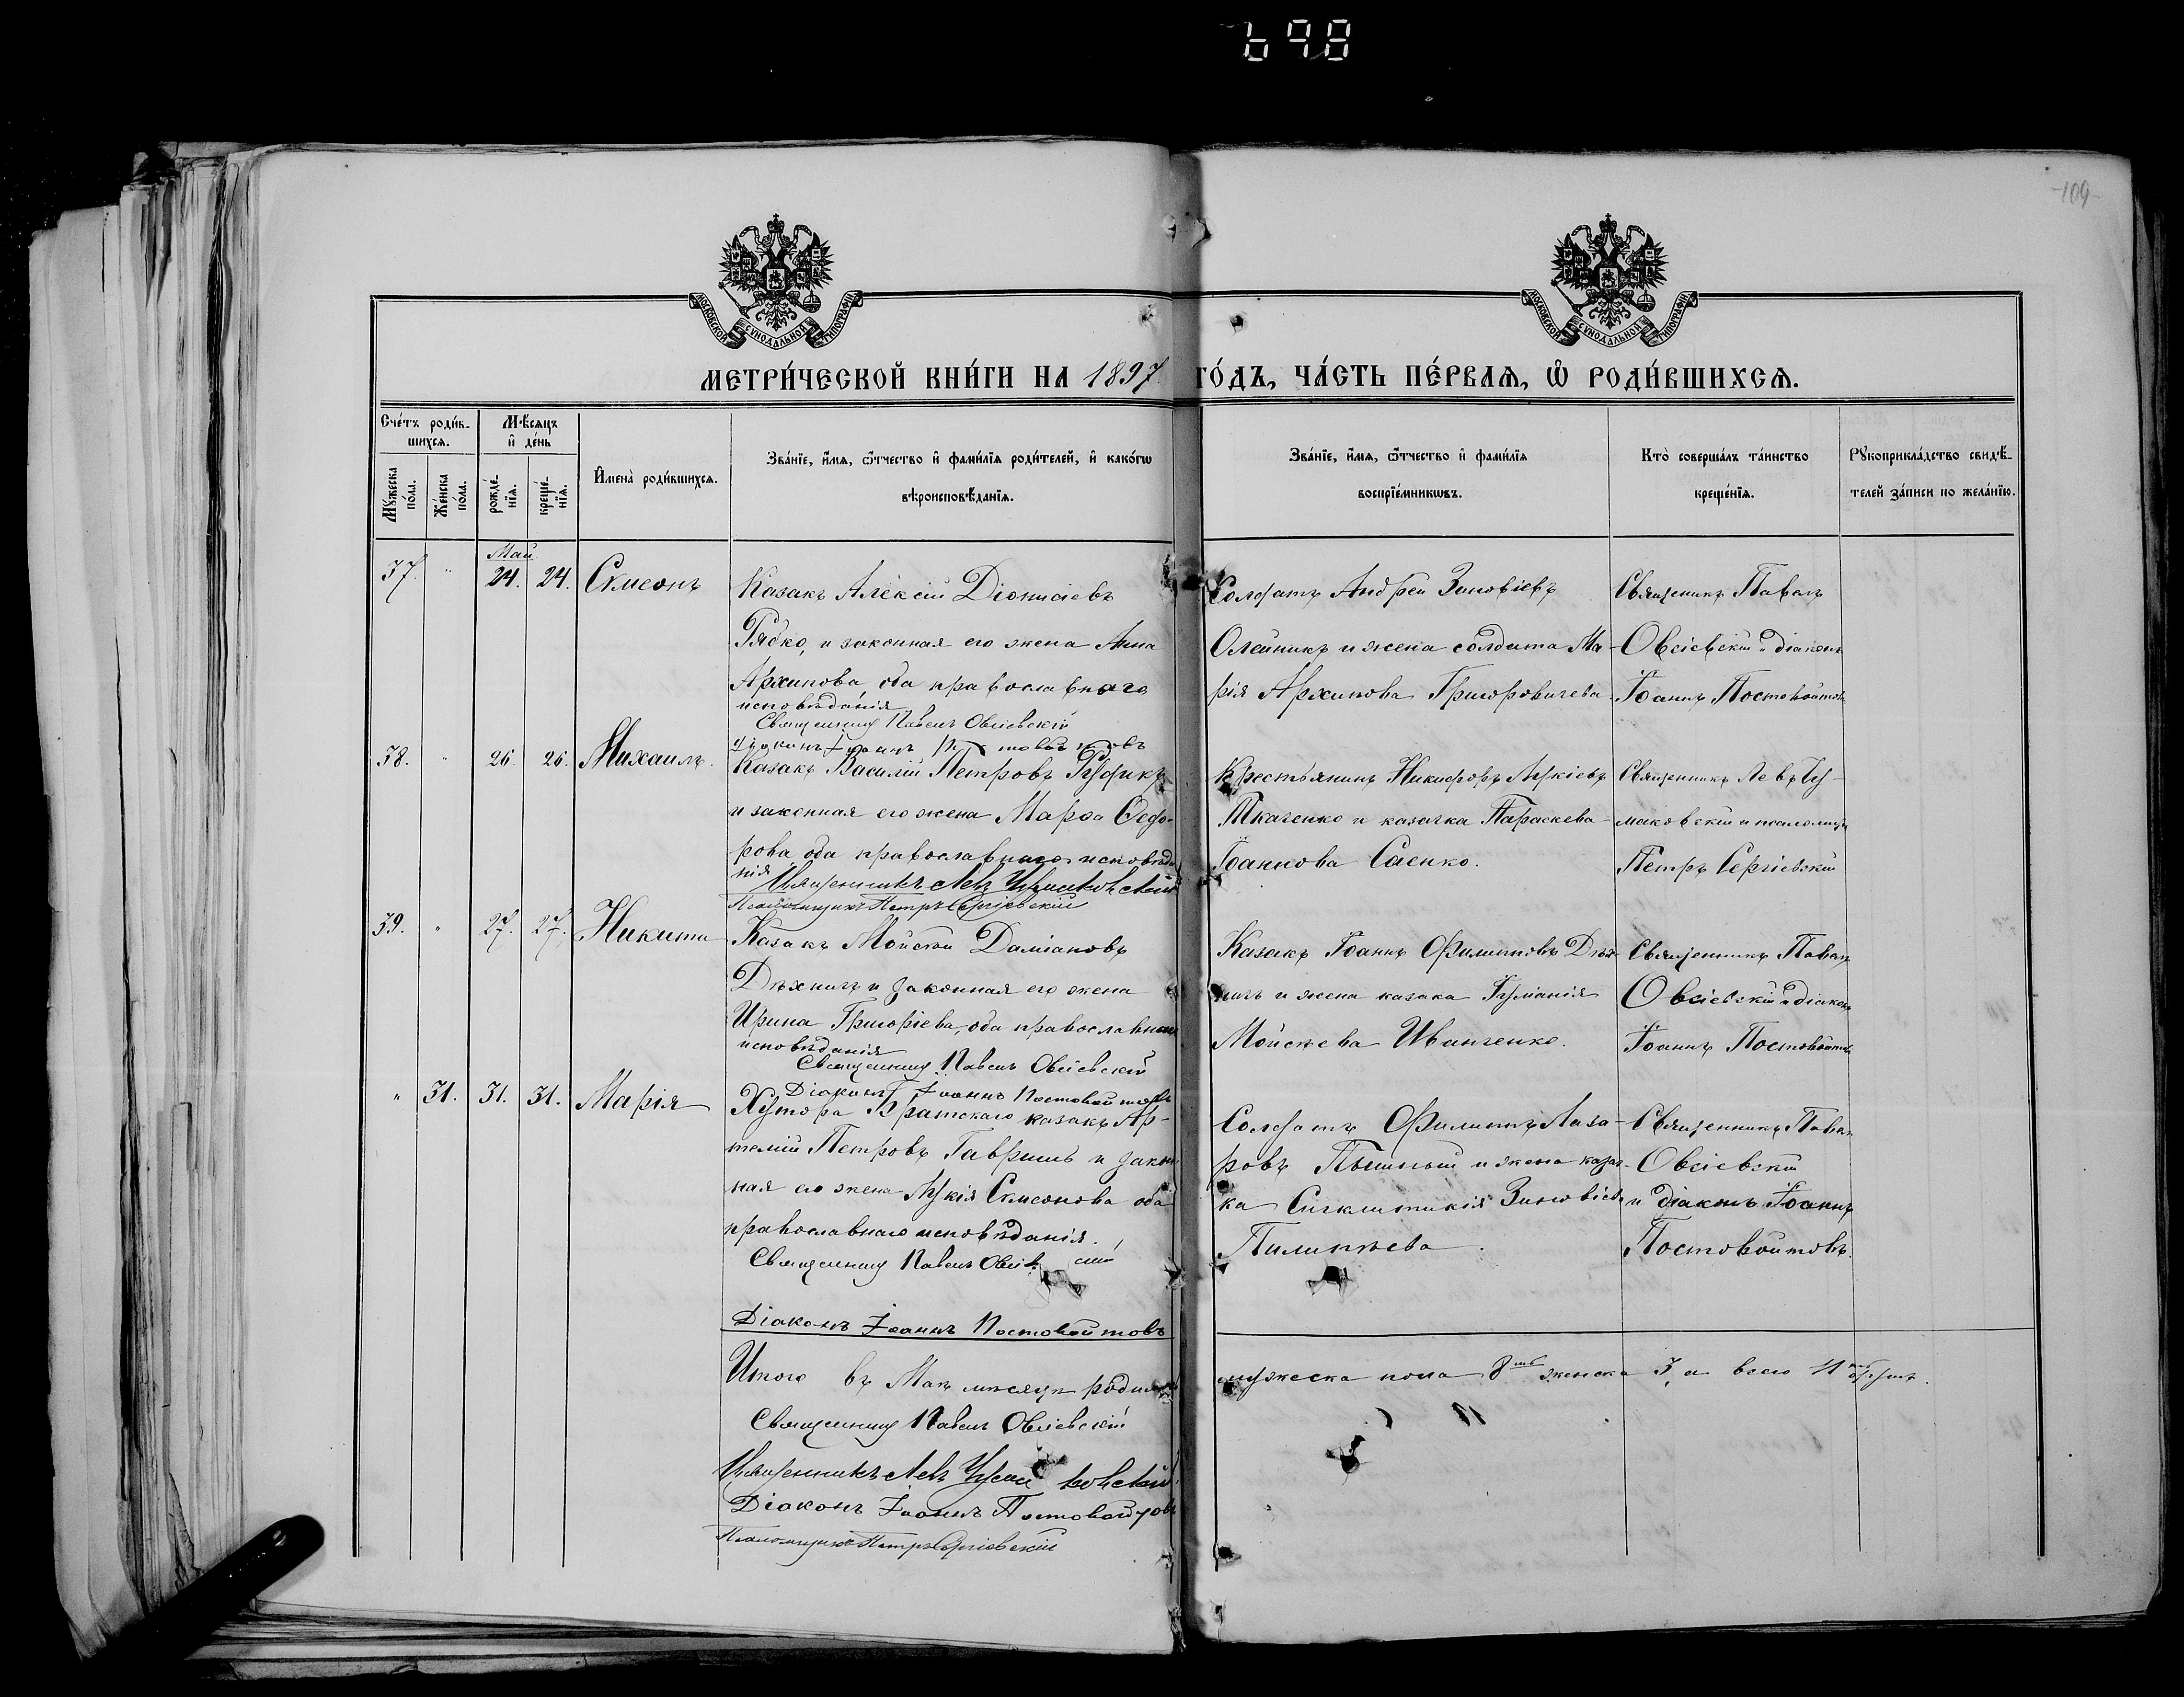 698
-109-
МОСКОВСКОЙ СѴНОДАЛЬНОЙ ТИПОГРАФІИ
МОСКОВСКОЙ СѴНОДАЛЬНОЙ ТИПОГРАФІИ
МЕТРИ́ЧЕСКОЙ КНИ́ГИ НА 1897 ГО́ДЪ, ЧА́СТЬ ПЕ́РВАѦ, Ѽ РОДИ́ВШИХСѦ.
Сче́тъ роди́в-
шихсѧ.
Мѣ́сѧцъ
и҆ де́нь
Мꙋ́жеска
по́ла.
Же́нска
по́ла.
рожде́-
нїѧ.
креще́-
нїѧ.
И҆мена̀ роди́вшихсѧ.
Зва́нїе, и҆́мѧ, ѻ҆́тчество и҆ фами́лїѧ роди́телей, и҆ како́гѡ
вѣроисповѣ́данїѧ.
Зва́нїе, и҆́мѧ, ѻ҆́тчество и҆ фами́лїѧ
воспрїе́мникѡвъ.
Кто̀ соверша́лъ та́инство
креще́нїѧ.
Рꙋкоприкла́дство свидѣ́-
телей за́писи по жела́нїю.
Май
37. " 24. 24. Сѵмеонъ
Казакъ Алексій Діонисіевъ
Рядко, и законная его жена Анна
Архипова, оба православнаго
исповѣданія
Священникъ Павелъ Овсіевскій
Діаконъ Іоаннъ Постовойтовъ
Солдатъ Андрей Зиновіевъ
Олейникъ и жена солдата Ма-
рія Архипова Григоровичева
Священникъ Павелъ
Овсіевскій и діаконъ
Іоаннъ Постовойтовъ
38. " 26. 26. Михаилъ.
Казакъ Василій Петровъ
и законная его жена Марѳа Ѳедо-
рова, оба православнаго исповѣда
нія
Священникъ Левъ Чумаковскій
Псаломщикъ Петръ Сергіевскій
Крестьянинъ Никифоръ Лукіевъ
Ткаченко и казачка Параскева
Іоаннова Саенко.
Священникъ Левъ Чу-
маковскій и псаломщикъ
Петръ Сергіевскій
39. " 27. 27. Никита
Казакъ Мойсей Даміановъ
Дѣхничъ и законная его жена
Ирина Григоріева, оба православнаго
исповѣданія
Священникъ Павелъ Овсіевскій
Діаконъ Іоаннъ Постовойтовъ
Казакъ Іоаннъ Филипповъ Дѣх-
ничъ и жена казака Іуліанія
Мойсѣева Иванченко.
Священникъ Павелъ
Овсіевскій и діаконъ
Іоаннъ Постовойтовъ
" 31. 31. 31. Марія
Хутора Братскаго казакъ Ар-
темій Петровъ Гавришъ и закон
ная его жена Лукія Сѵмеонова оба
православнаго исповѣданія.
Священникъ Павелъ Овсіевскій
Діаконъ Іоаннъ Постовойтовъ
Солдатъ Филиппъ Лаза-
ровъ Пышный и жена казач-
ка Синклитикія Зиновіева
Пилипѣева.
Священникъ Павелъ
Овсіевскій
и діаконъ Іоаннъ
Постовойтовъ.
Итого въ Маѣ мѣсяцѣ родилось мужеска пола 8мь женска 3, а всего 11ть душъ.
Священникъ Павелъ Овсіевскій
Священникъ Левъ Чумаковскій
Діаконъ Іоаннъ Постовойтовъ
Псаломщикъ Петръ Сергіевскій